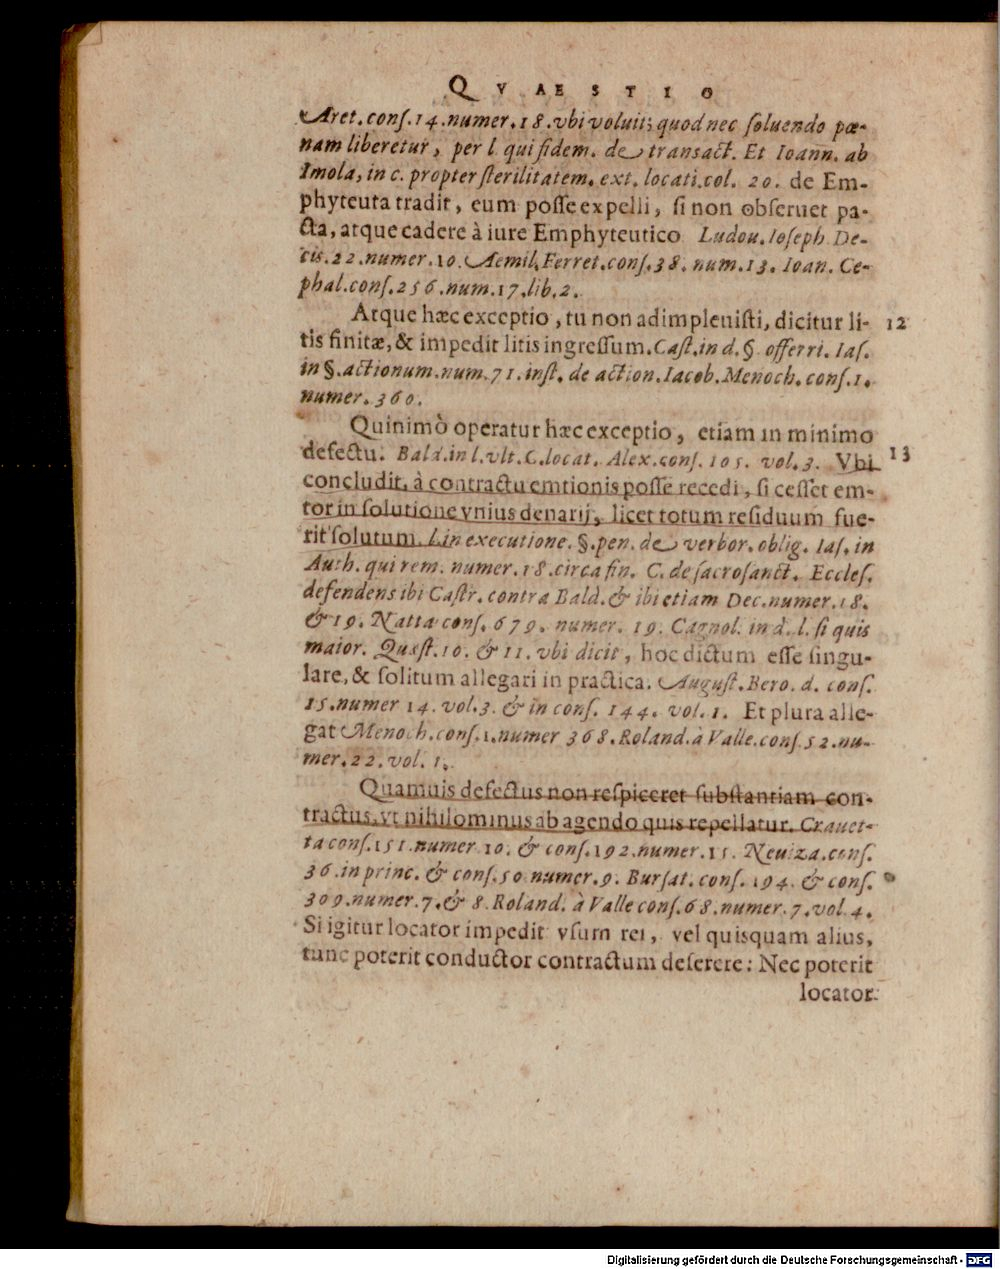 QVAESTIO
Aret. conſ. 14. numer. 18. vbi voluit, quod nec ſoluendo pœ-
nam liberetur, per l qui fidem. de transact. Et Ioann. ab
Imola, in c. propter ſterilitatem. ext. locati. col. 20. de Em-
phyteuta tradit, eum poſſe expelli, ſi non obſeruet pa-
cta, atque cadere à iure Emphyteutico Ludou. Ioſeph. De-
cis. 22. numer. 10. Aemil. Ferret. conſ. 38. num. 13. Ioan. Ce-
phal. conſ. 256. num. 17. lib. 2.
Atque hæc exceptio, tu non adimpleuiſti, dicitur li- 12
tis finitæ, & impedit litis ingreſſum. Caſt. in d. §. offerri. Iaſ.
in §. actionum. num. 71. inſt. de action. Iacob. Menoch. conſ. 1.
numer. 360.
Quinimò operatur hæc exceptio, etiam in minimo
defectu. Bald. in l. vlt. C. locat. Alex. conſ. 105. vol. 3. Vbi 13
concludit, à contractu emtionis poſſe recedi, ſi ceſſet em-
tor in ſolutione vnius denarij, licet totum reſiduum fue-
rit ſolutum. l. in executione. §. pen. de verbor. oblig. Iaſ. in
Auth. qui rem. numer. 18. circa fin. C. de ſacroſanct. Eccleſ.
defendens ibi Caſtr. contra Bald. & ibi etiam Dec. numer. 18.
& 19. Natta conſ. 679. numer. 19. Cagnol. in d. l. ſi quis
maior. Quæſt. 10. & 11. vbi dicit, hoc dictum eſſe ſingu-
lare, & ſolitum allegari in practica. Auguſt. Bero. d. conſ.
15. numer 14. vol. 3. & in conſ. 144. vol. 1. Et plura alle-
gat Menoch. conſ. 1. numer 368. Roland. à Valle. conſ. 52. nu-
mer. 22. vol. 1.
Quamuis defectus non reſpiceret ſubſtantiam con-
tractus, vt nihilominus ab agendo quis repellatur. Crauet-
ta conſ. 151. numer 10. & conſ. 192. numer. 15. Neuiza. conſ.
36. in princ. & conſ. 50 numer. 9. Burſat. conſ. 194. & conſ.
309. numer. 7. & 8. Roland. à Valle conſ. 68. numer. 7. vol 4.
Si igitur locator impedit vſum rei, vel quisquam alius,
tunc poterit conductor contractum deſerere: Nec poterit
locator
Digitalisierung gefördert durch die Deutsche Forschungsgemeinschaft - DFG